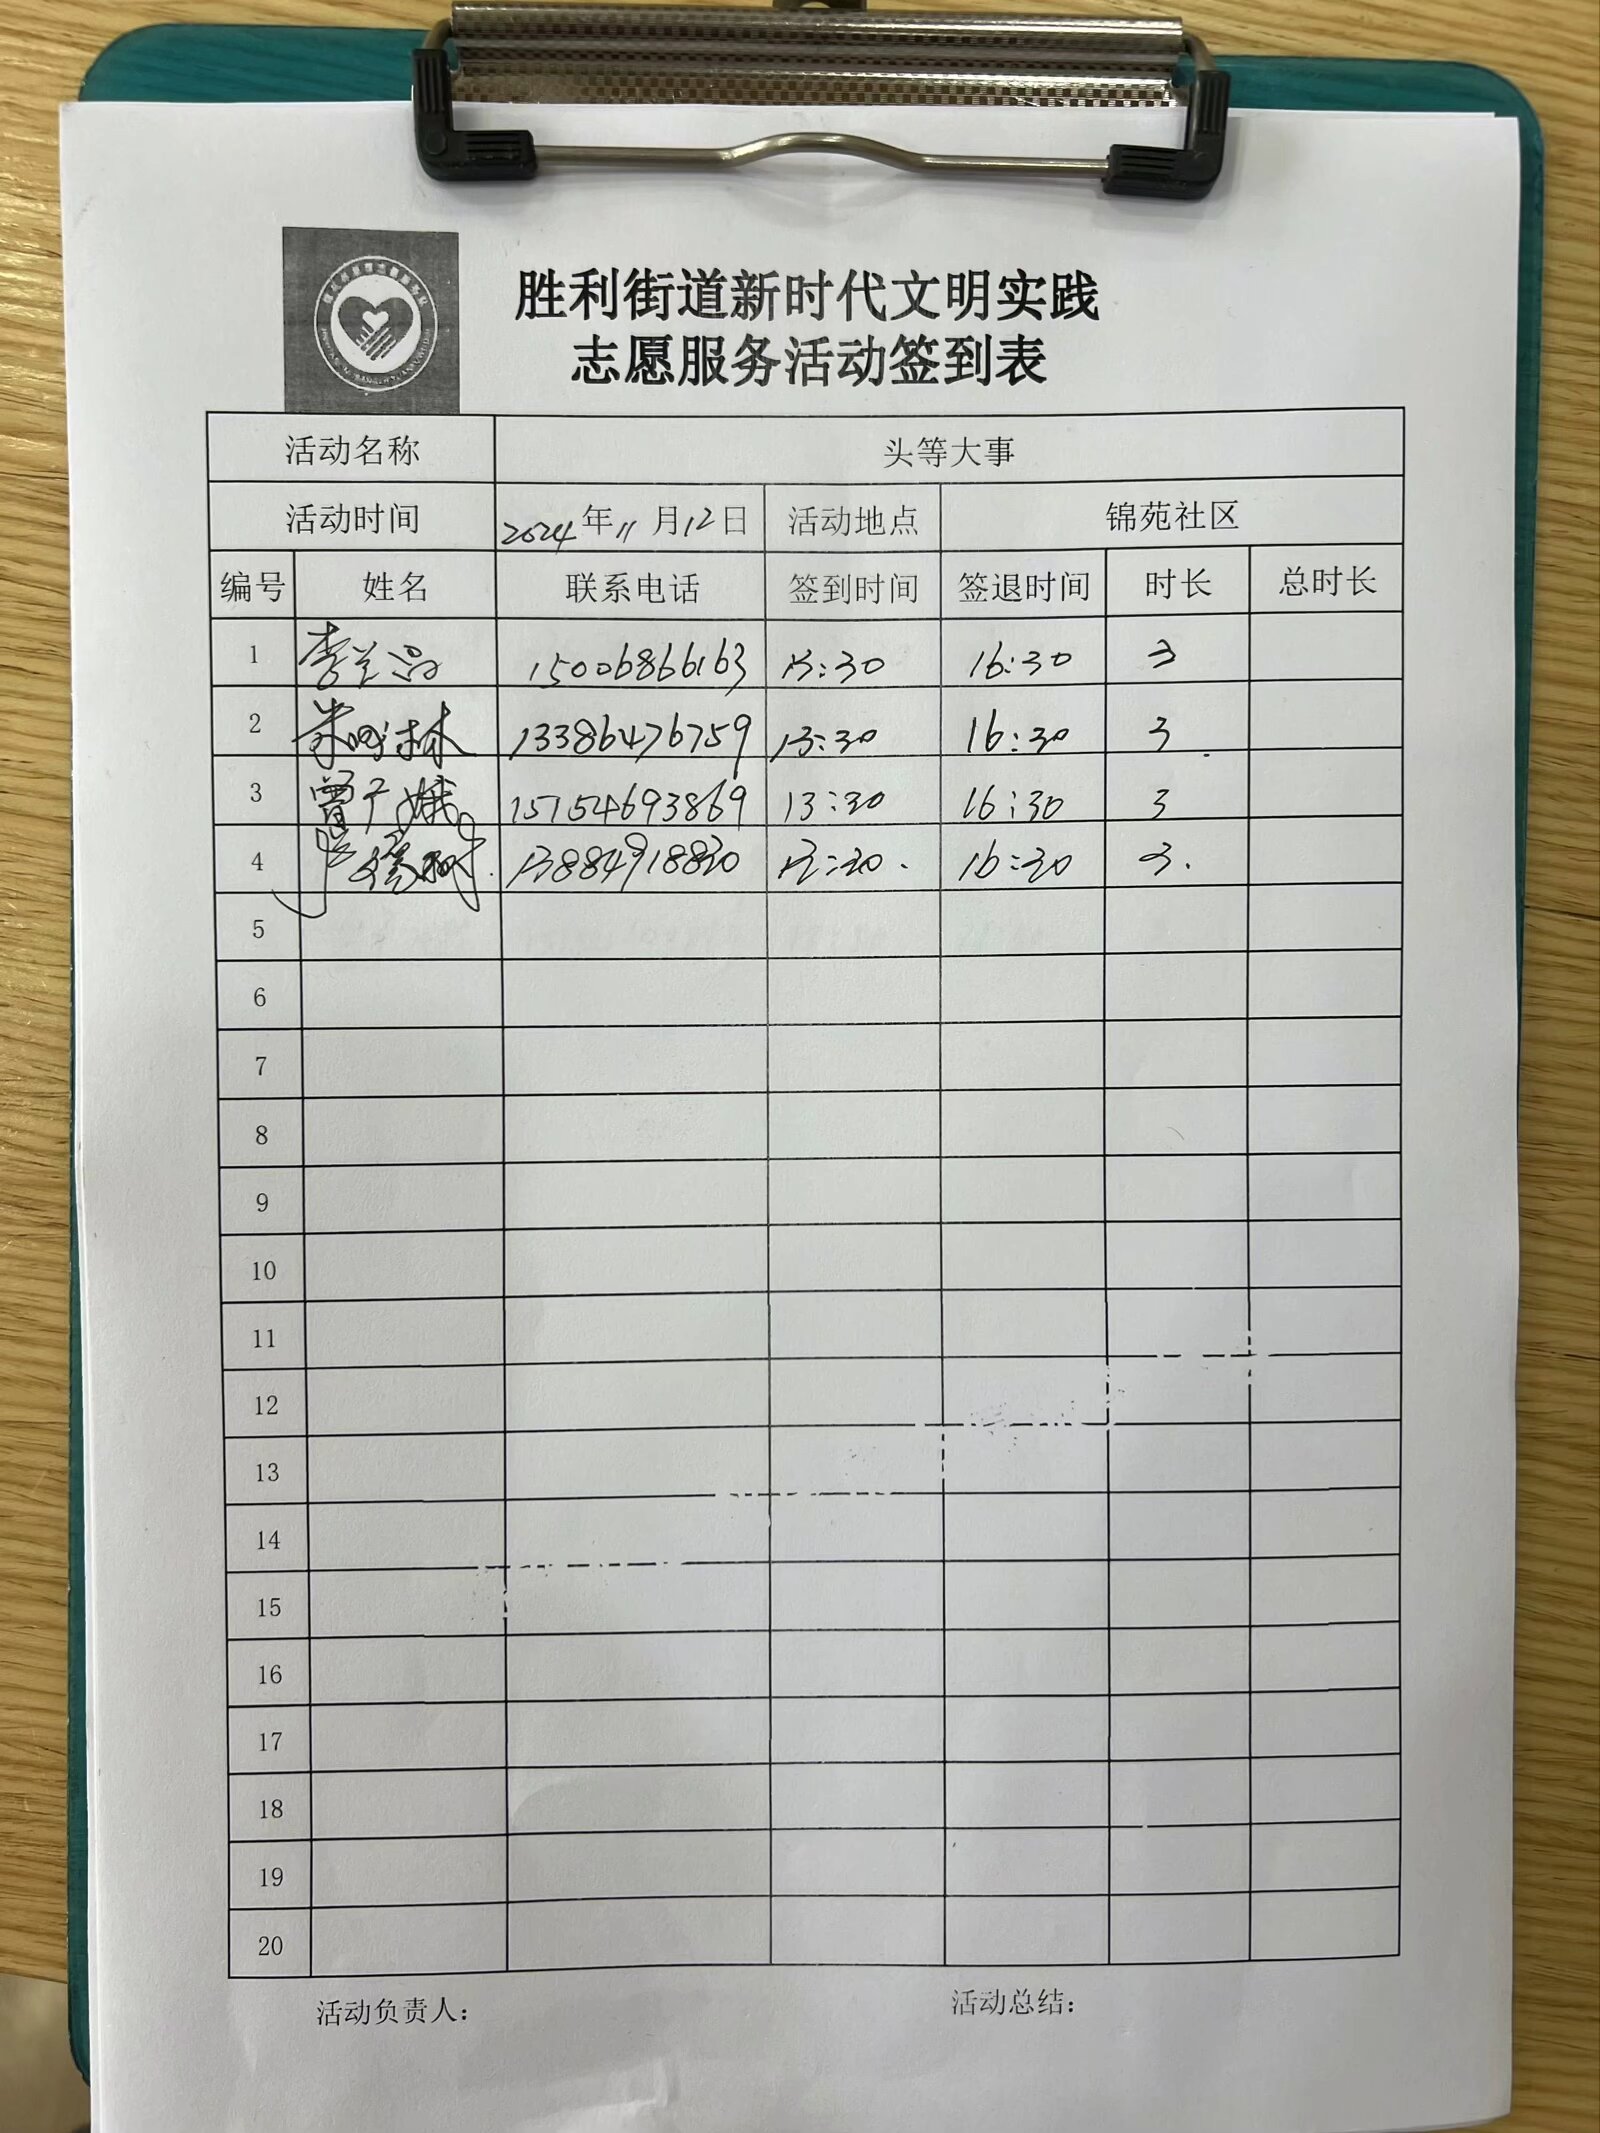 胜利街道新时代文明实践
志愿服务活动签到表
活动名称 头等大事
活动时间 2024年11月12日 活动地点 锦苑社区
编号 姓名 联系电话 签到时间 签退时间 时长 总时长
1 李兰 15006866163 13:30 16:30 3
2 林 13386476759 13:30 16:30 3
3 曾广娥 15754693869 13:30 16:30 3
4 13884918830 13:30. 16:30 3.
5
6
7
8
9
10
11
12
13
14
15
16
17
18
19
20
活动负责人： 活动总结：